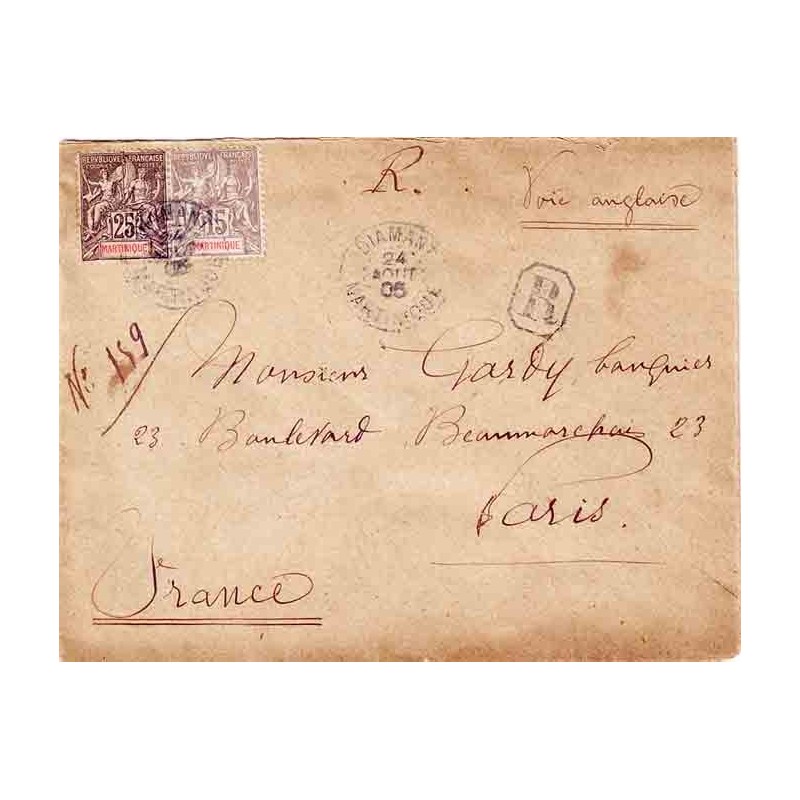 REPVBLIQUE FRANCAISE
COLONIES POSTES
25
MARTINIQUE
REPVBLIQUE FRANCAISE
15
MARTINIQUE
DIAMANT
MARTINIQUE
R.
Voie anglaise
DIAMANT
24
AOUT
05
MARTINIQUE
R
No 159
Monsieur Gardy banquier
23 Boulevard Beaumarchais 23
Paris.
France